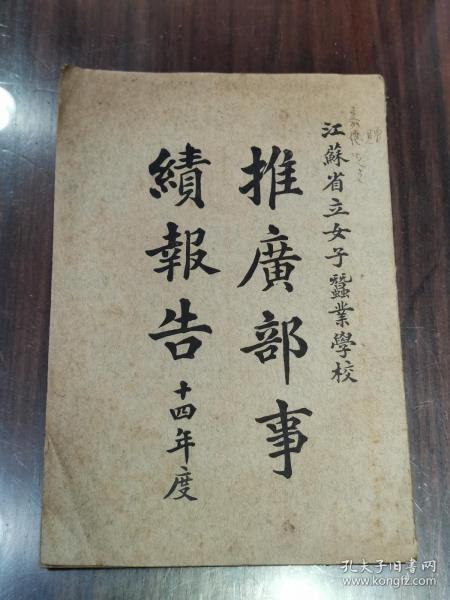 江蘇省立女子蠶業學校
推廣部事
績報告
十四年度
孔夫子旧书网
www.kongfz.com